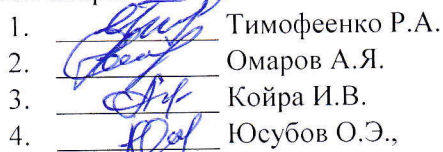 1. Тимофеенко Р.А.
2. Омаров А.Я.
3. Койра И.В.
4. Юсубов О.Э.,